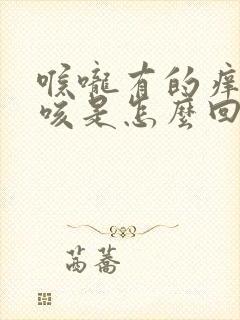 喉嚨有的癢
咳是怎麼回
萵蕎